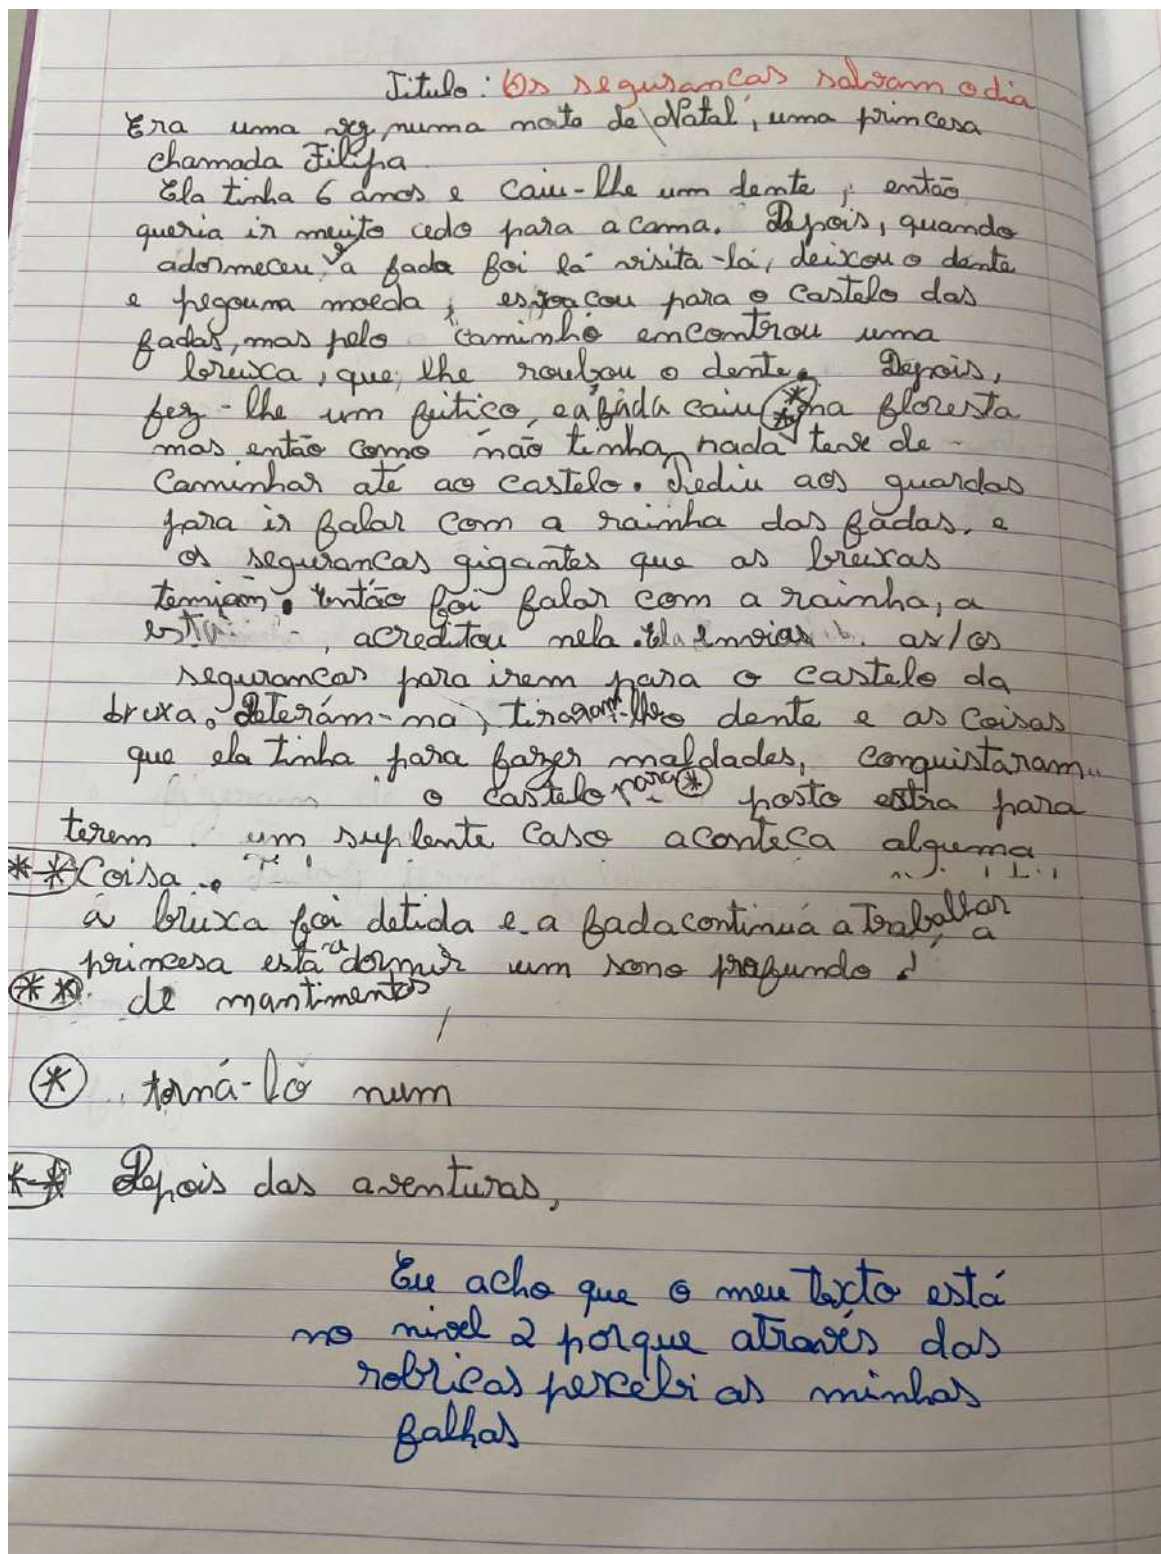 Titulo: Os seguranças salvam o dia
Era uma vez, numa noite de Natal, uma princesa
chamada Filipa
Ela tinha 6 anos e caiu-lhe um dente, então
queria ir muito cedo para a cama. Depois, quando
adormeceu a fada foi lá visita-la, deixou o dente
e pegou na moeda, esvoaçou para o castelo das
fadas, mas pelo caminho encontrou uma
bruxa, que lhe roubou o dente. Depois,
fez-lhe um feitiço, e a fada caiu na floresta
mas então como não tinha nada teve de
caminhar até ao castelo. Pediu aos guardas
para ir falar com a rainha das fadas, e
os seguranças gigantes que as bruxas
temiam. Então foi falar com a rainha, a
esta, acreditou nela. as/os
seguranças para irem para o castelo da
bruxa. Deterám-na, tiraram-lhe o dente e as coisas
que ela tinha para fazer maldades, conquistaram
o castelo para * posto extra para
terem um suplente caso aconteca alguma
** Coisa.
a bruxa foi detida e a fada continuá a trabalhar, a
princesa está a dormir um sono profundo!
** de mantimentos,
* torná-lo num
** Depois das aventuras,
Eu acho que o meu texto está
no nivel 2 porque através das
robricas percebi as minhas
falhas